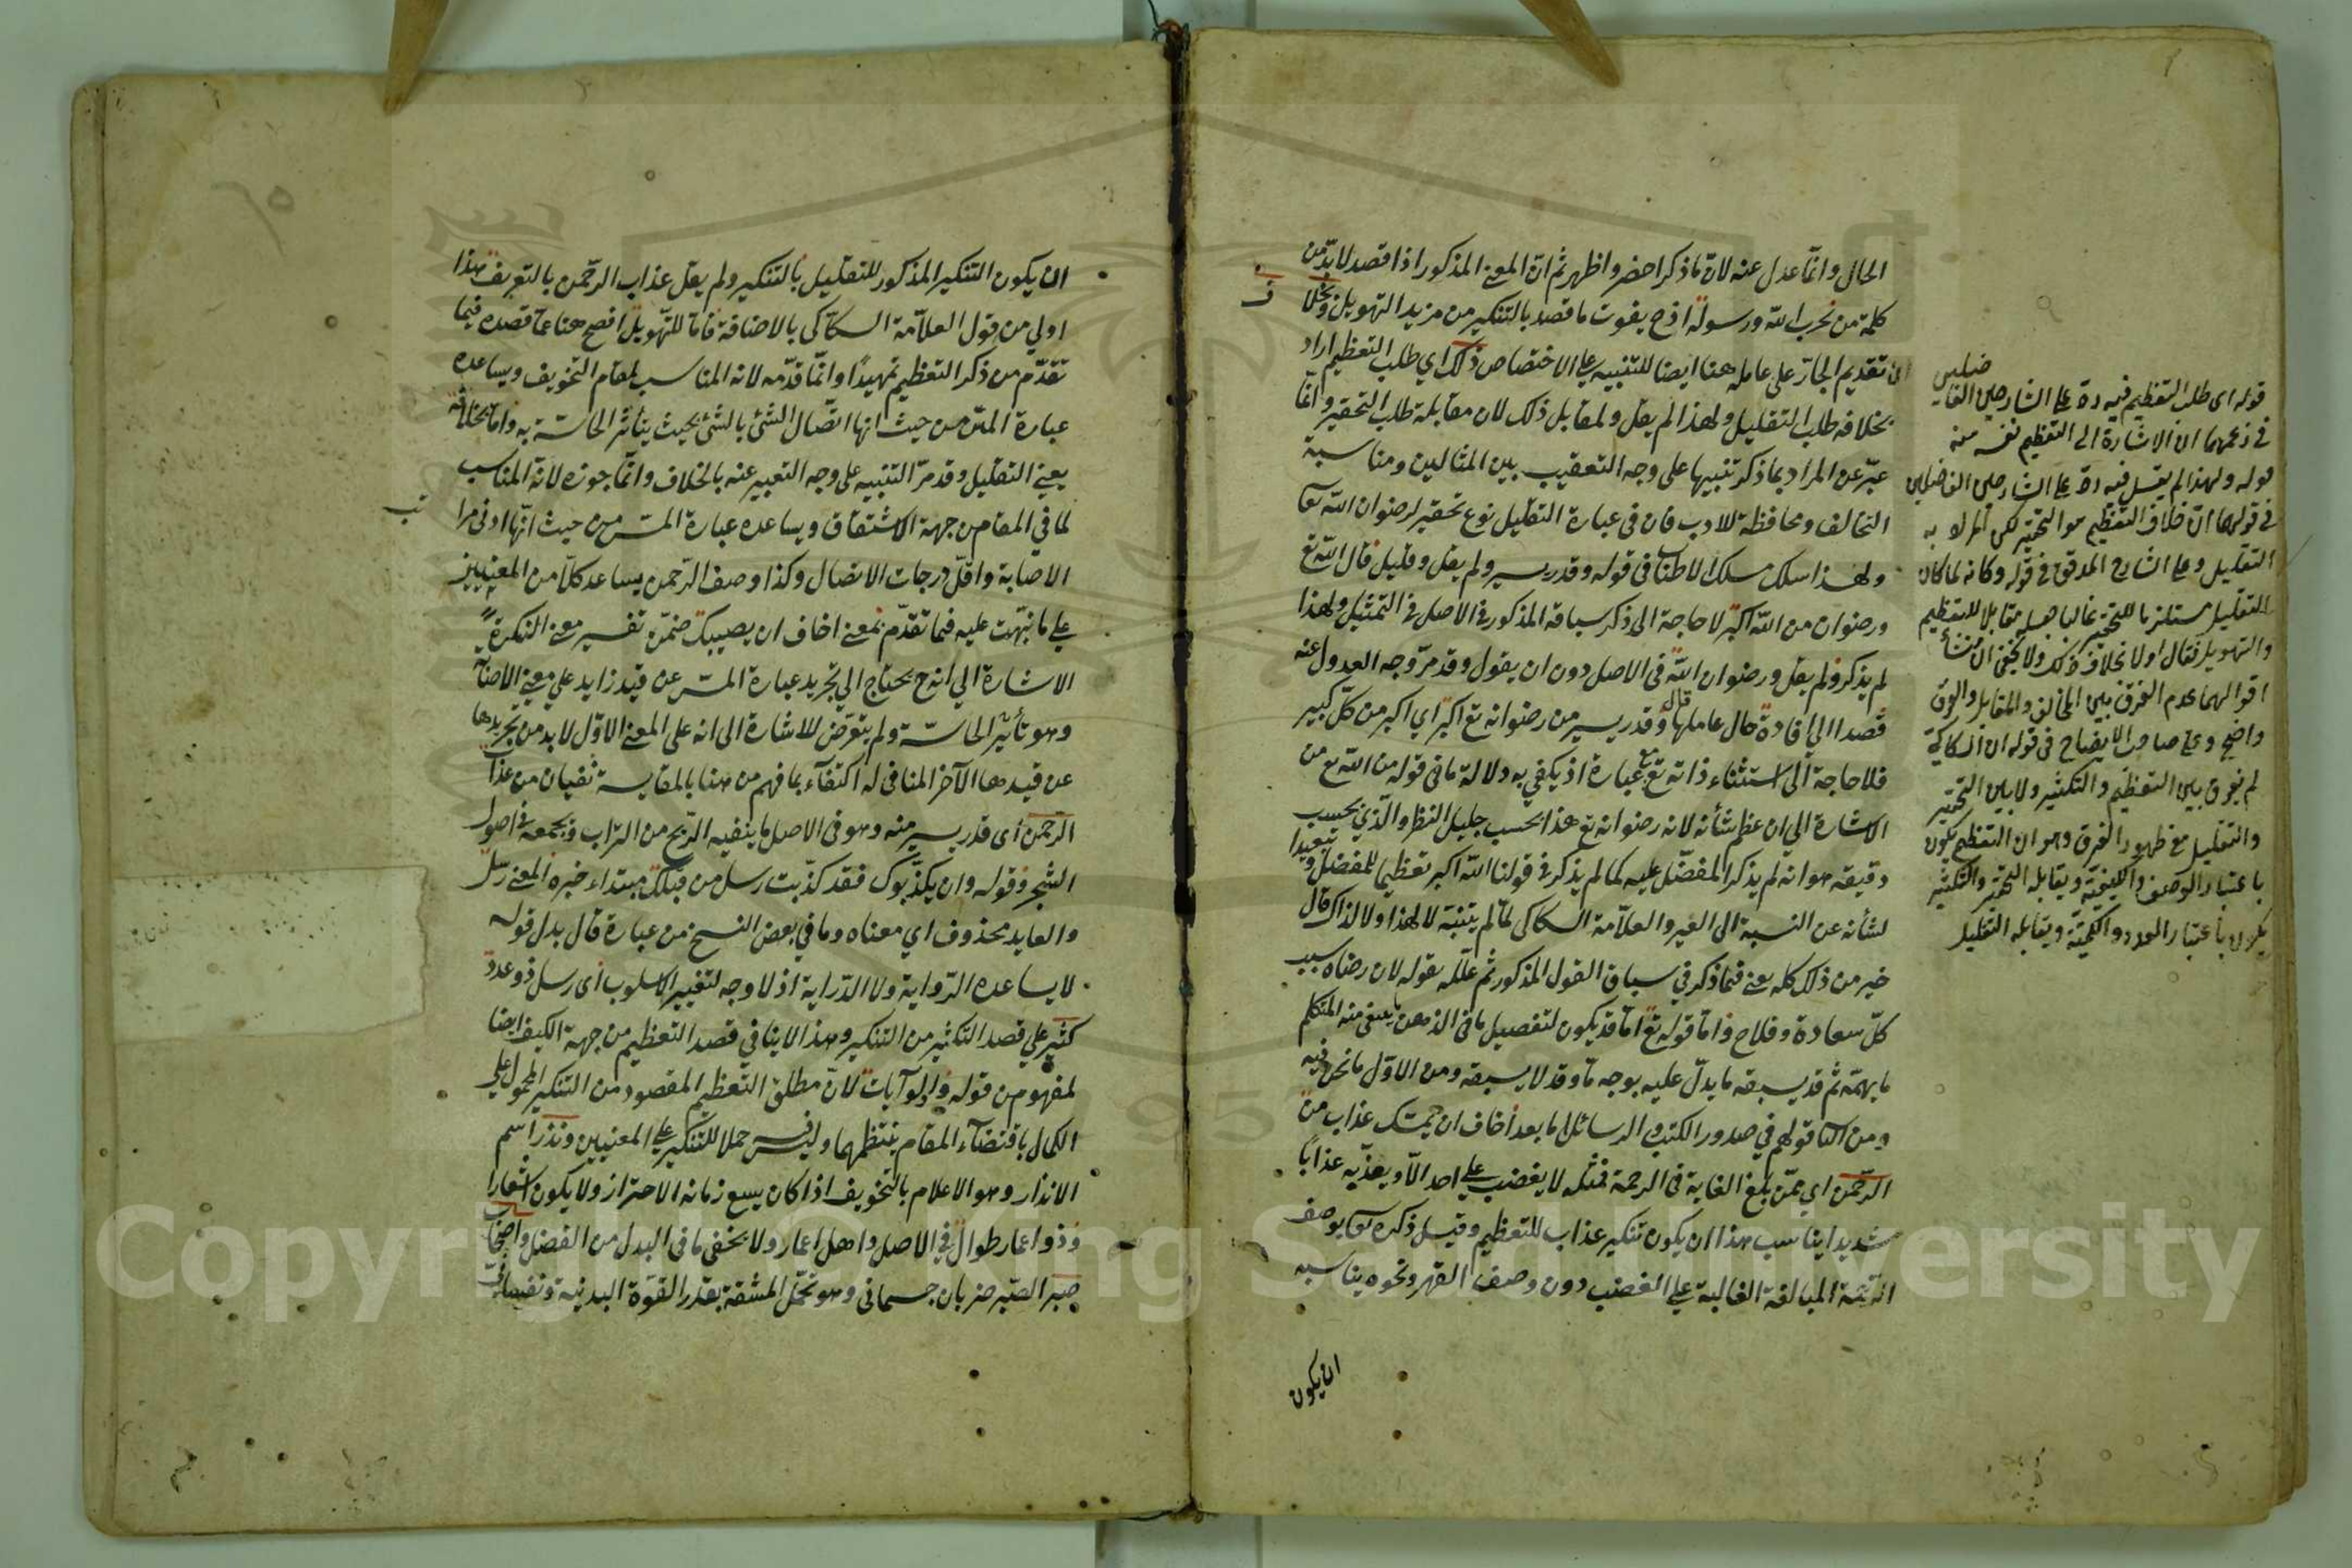 الحال وانما عدل عنه لان ما ذكر اخصر واظهر ثم ان المعنى المذكور اذا قصد لا بد من
كلمة من بحرب الله ورسوله اذ ح يفوت ما قصد بالتنكير من مزيد التهويل وبخلا
ف
تقديم الجار على عامله هنا ايضا للتنبيه على الاختصاص ذلك اي طلب التعظيم اراد
بخلافه طلب التقليل ولهذا لم يقل ولمقابل ذلك لان مقابلة طلب التحقير وانما
عبر عن المراد بما ذكر تنبيها على وجه التعقيب بين المثالين ومناسبة
التخالف ومحافظة للادب فان في عبارة التقليل نوع تحقير لرضوان الله تعا
ولهذا سلك مسلك الاطناب في قوله وقدر يسير ولم يقل وقليل قال الله تع
ورضوان من الله اكبر لا حاجة الى ذكر سياقه المذكور في الاصل في التمثيل ولهذا
لم يذكر ولم يقل ورضوان الله في الاصل دون ان يقول وقد مر وجه العدول عنه
قصدا الى افادة حال عاملها قال وقدر يسير من رضوانه تع اكبر اي اكبر من كل كبير
فلا حاجة الى استثناء ذاته تع عبارة اذ يكفي به دلالة ما في قوله من الله تع من
الاشارة الى ان عظم شأنه لانه رضوانه تع هذا بحسب جليل النظر والذي بحسب
دقيقه هو انه لم يذكر المفضل عليه كما لم يذكر في قولنا الله اكبر تعظيما للمفضل وتبعيدا
لشأنه عن النسبة الى الغير والعلامة السكاكى لما لم يتنبه لا لهذا ولا لذاك قال
خير من ذلك كله يعني فيما ذكر في سياق القول المذكور ثم علله بقوله لان رضاه سبب
كل سعادة وفلاح واما قوله تع اما قد يكون لتفصيل ما في الذهن يعنى منه المتكلم
ما يهمه ثم قد يسبقه ما يدل عليه بوجه ما وقد لا يسبقه ومن الاول ما نحن فيه
ومن الثا قولهم في صدور الكتب والرسائل اما بعد اخاف ان يمسك عذاب من
الرحمن اي ممن بلغ الغاية في الرحمة فمثله لا يغضب على احد الا ويعذبه عذابا
شديدا يناسب هذا ان يكون تنكير عذاب للتعظيم وقيل ذكره تعا بوصف
الرحمة المبالغة الغالبة على الغضب دون وصف القهر ونحوه يناسبه
ان يكون
قوله اى طلب التعظيم فيه رد على الشارحين الفاضلين
في زعمهما ان الاشارة الى التعظيم نفسه منه
قوله ولهذا لم يقل فيه رد على الشارحين الفاضلين
في قولهما ان خلاف التعظيم هو التحقير لكن المراد به
التقليل وعلى الشارح المدقق في قوله وكانه لما كان
التقليل مستلزما للتحقير غالبا جعله مقابلا للتعظيم
والتهويل فقال اولا بخلاف ذلك ولا يخفى ان منشأ
اقوالهما عدم الفرق بين المخالف والمقابل والفرق
واضح وعلى صاحب الايضاح في قوله ان السكاكى
لم يفرق بين التعظيم والتكثير ولا بين التحقير
والتقليل مع ظهور الفرق وهو ان التعظيم يكون
باعتبار الوصف والكيفية ويقابله التحقير والتكثير
يكون باعتبار العدد والكمية ويقابله التقليل
ان يكون التنكير المذكور للتقليل بالتنكير ولم يقل عذاب الرحمن بالتعريف هذا
اولى من قول العلامة السكاكى بالاضافة فاما للتهويل افصح هنا عما قصده فيما
تقدم من ذكر التعظيم تمهيدا وانما قدمه لانه المناسب لمقام التخويف ويساعده
عبارة المس من حيث انها اتصال الشئ بالشئ بحيث يتأثر الحاسة به واما بخلافه
يعني التقليل وقد مر التنبيه على وجه التعبير عنه بالخلاف وانما جوزه لانه المناسب
لما في المقام من جهة الاشتقاق ويساعده عبارة المس من حيث انها ادنى مرا
تب
الاصابة واقل درجات الاتصال وكذا وصف الرحمن يساعد كلا من المعنيين
على ما نبهت عليه فيما تقدم بمعنى اخاف ان يصيبك ضمن تفسير معنى النكرة
الاشارة الى انه ح يحتاج الى تجريد عبارة المس عن قيد زايد على معنى الاصابة
وهو تأثير الحاسة ولم يتعرض للاشارة الى انه على المعنى الاول لا بد من تجريدها
عن قيدها الآخر المنافى له اكتفاء بما فهم من هنا بالمقايسة نفيان من عذاب
الرحمن اى قدر يسير منه وهو في الاصل ما ينفيه الريح من التراب ويجمعه في اصول
الشجر وقوله وان يكذبوك فقد كذبت رسل من قبلك مبتداء خبره المعنى رسل
والعايد محذوف اي معناه وما في بعض النسخ من عبارة قال بدل قوله
لا يساعده الرواية ولا الدراية اذ لا وجه لتغيير الاسلوب اى رسل ذو عدد
كثير على قصد التكثير من التنكير وهذا لا ينافي قصد التعظيم من جهة الكيف ايضا
لمفهوم من قوله واولو آيات لان مطلق التعظيم المقصود من التنكير المحمول على
الكمال باقتضاء المقام ينتظمهما وليس حملا للتنكير على المعنيين ونذر اسم
الانذار وهو الاعلام بالتخويف اذا كان يسع زمانه الاحتراز ولا يكون اشعارا
وذو اعمار طوال في الاصل واهل اعمار ولا يخفى ما في البدل من الفضل واصحاب
صبر الصبر ضربان جسمانى وهو تحمل المشقة بقدر القوة البدنية ونفسانى
Copyright © King Saud University